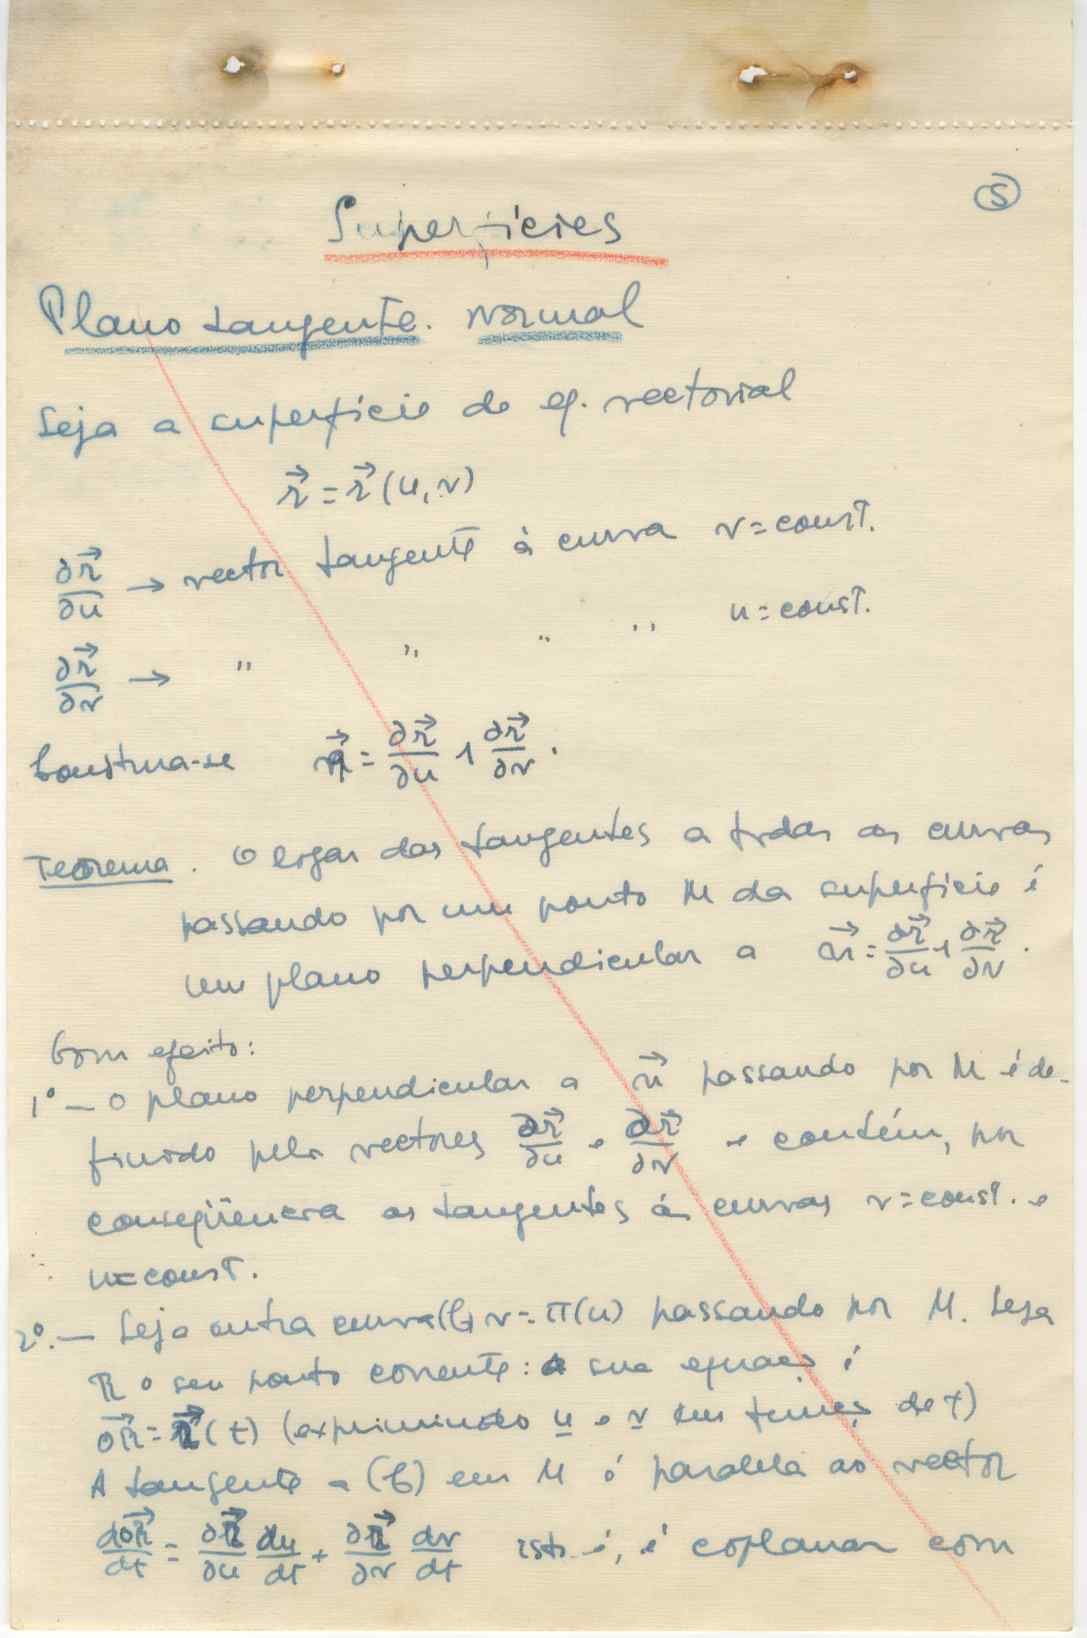 ⑤
Superfícies
Plano tangente. Normal
Seja a superfície de eq. vectorial
r⃗ = r⃗ (u, v)
∂r⃗/∂u → vector tangente à curva v = const.
∂r⃗/∂v → " " " " u = const.
Construa-se n⃗ = ∂r⃗/∂u ∧ ∂r⃗/∂v .
Teorema. O lugar das tangentes a todas as curvas
passando por um ponto M da superfície é
um plano perpendicular a n⃗ = ∂r⃗/∂u ∧ ∂r⃗/∂v .
Com efeito:
1º — O plano perpendicular a n⃗ passando por M é de-
finido pelos vectores ∂r⃗/∂u e ∂r⃗/∂v e contém, por
conseqüencia as tangentes às curvas v = const. e
u = const.
2º. — Seja outra curva (C) v = π(u) passando por M. Seja
R o seu ponto corrente: a sua equação é
OR⃗ = r⃗ (t) (exprimindo u e v em termos de t)
A tangente a (C) em M é paralela ao vector
dOR⃗/dt = ∂r⃗/∂u du/dt + ∂r⃗/∂v dv/dt isto é, é coplanar com